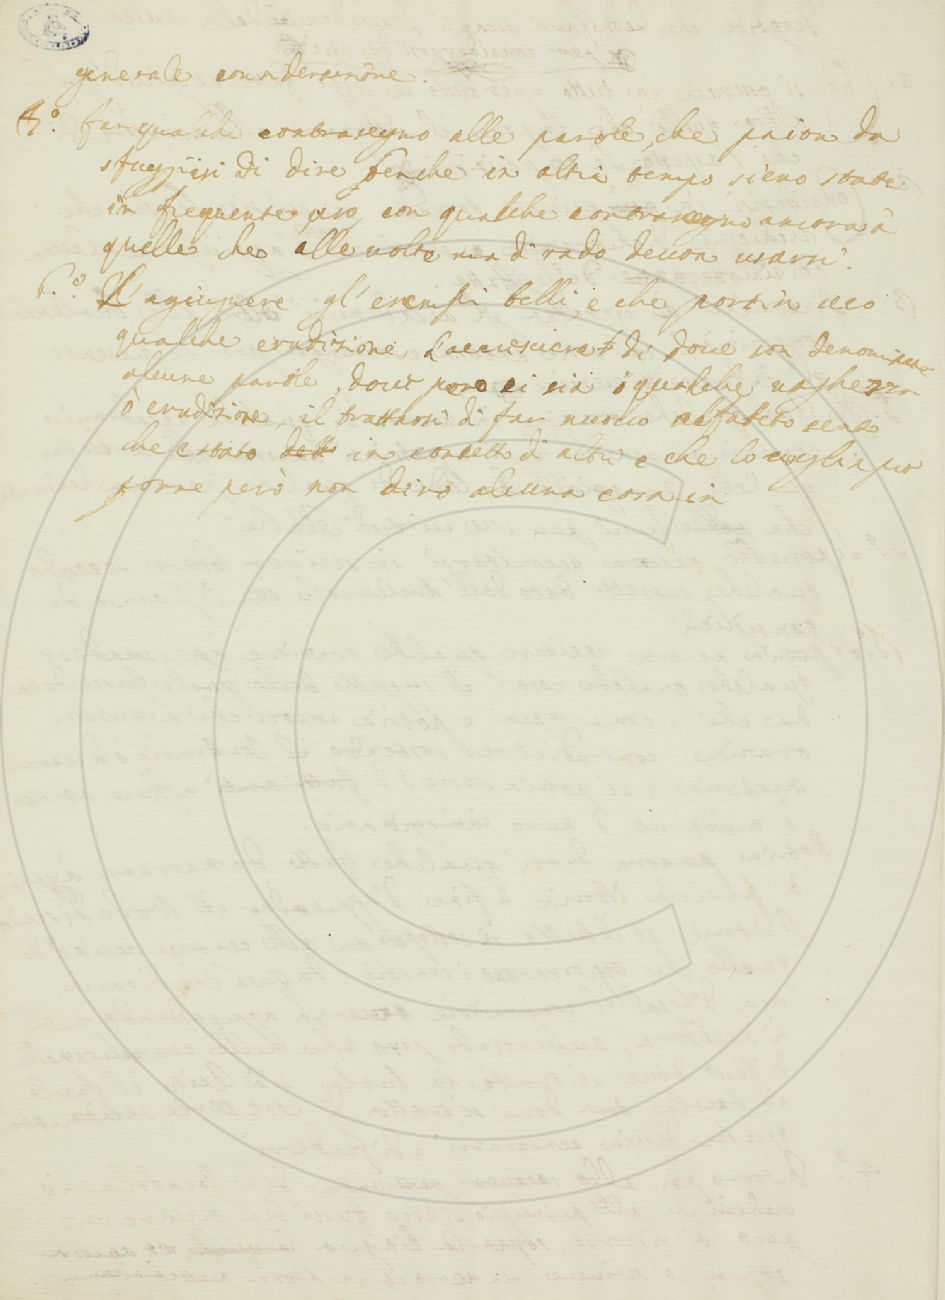 generale considerazione.
4.º far qualche contrasegno alle parole, che paion da
sfuggirsi di dire benche in altri tempo sieno state
in frequente uso, con qualche contrasegno ancora à
quelle che alle volte ma di rado devon usarsi.
L'agiugnere gl'esempi belli, e che portin seco
qualche erudizione, L'accrescere di dove son denominate
alcune parole, dove però ci sia qualche vaghezza
ò erudizione, il trattarsi di far nuovo alfabeto sento
che è stato in di altri e che lo voglia pro
porre però non dirò alcuna cosa in